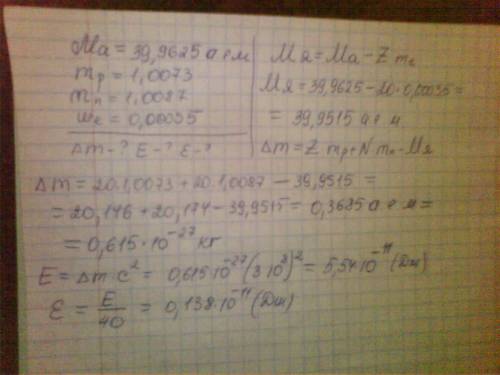 Ma = 39,9625 а е м
mp = 1,0073
mn = 1,0087
me = 0,00055
Δm - ? E - ? ε - ?
Mя = Ma - Z me
Mя = 39,9625 - 20 · 0,00055 =
= 39,9515 а е м
Δm = Z mp + N mn - Mя
Δm = 20 · 1,0073 + 20 · 1,0087 - 39,9515 =
= 20,146 + 20,174 - 39,9515 = 0,3685 а. е м =
= 0,615 · 10⁻²⁷ кг
E = Δm c² = 0,615 · 10⁻²⁷ (3 · 10⁸)² = 5,54 · 10⁻¹¹ (Дж)
ε = E/40 = 0,138 · 10⁻¹¹ (Дж)